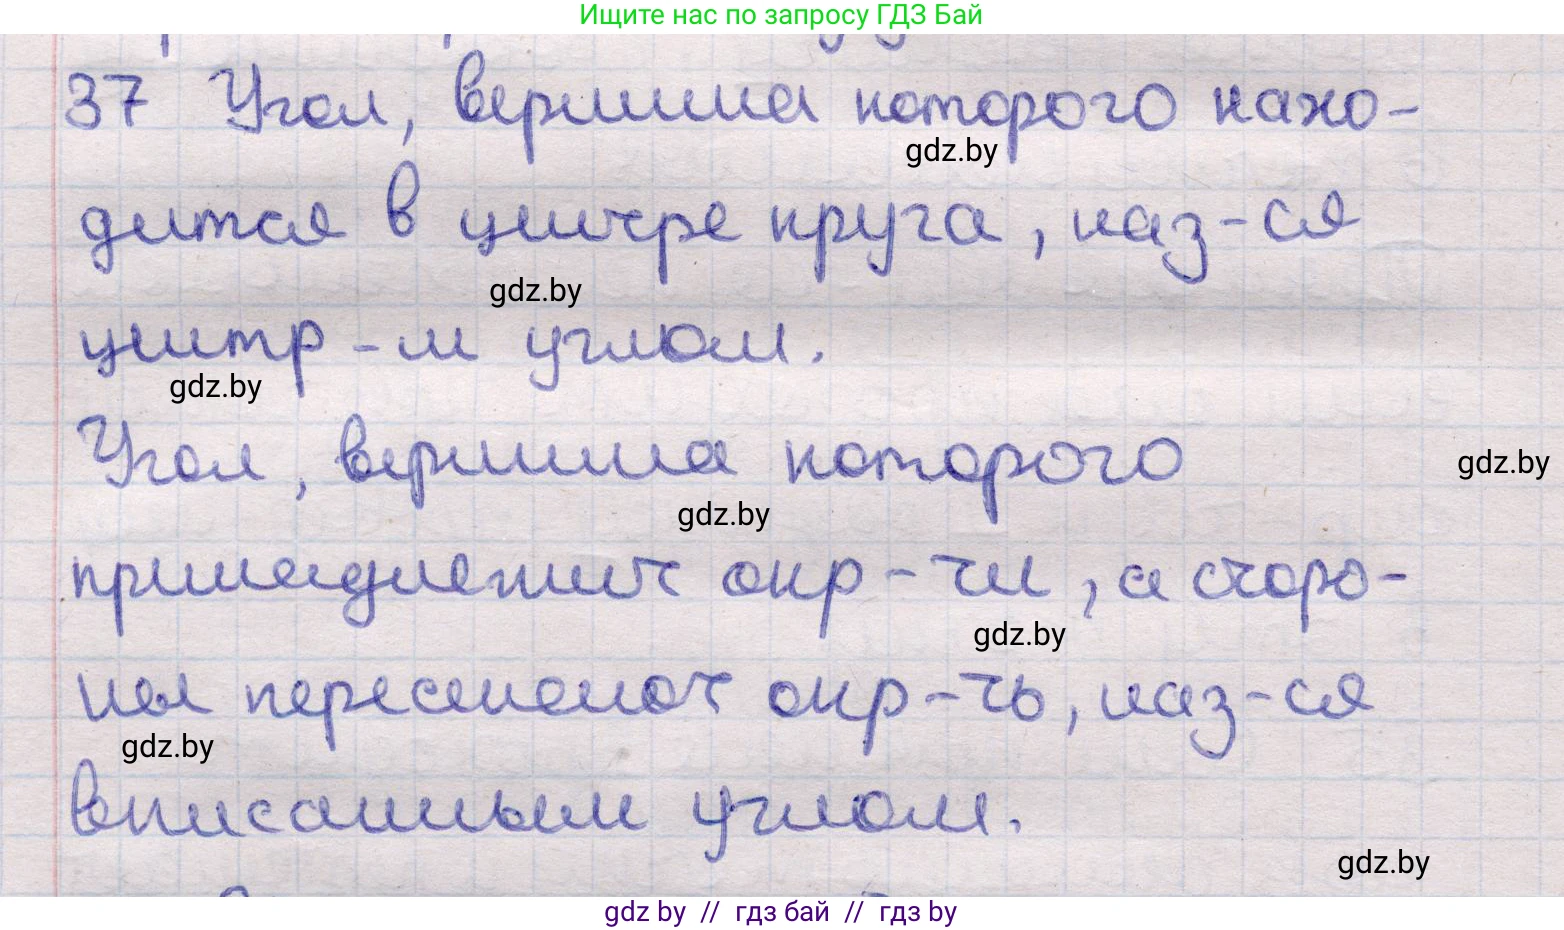 Ищите нас по запросу ГДЗ Бай
37 Угол, вершина которого нахо-
gdz.by
дится в центре круга, наз-ся
gdz.by
центр-м углом.
gdz.by
Угол, вершина которого
gdz.by
gdz.by
принадлежит окр-ти, а сторо-
gdz.by
ны пересекают окр-ть, наз-ся
gdz.by
вписанным углом.
gdz.by
gdz by // гдз бай // гдз by